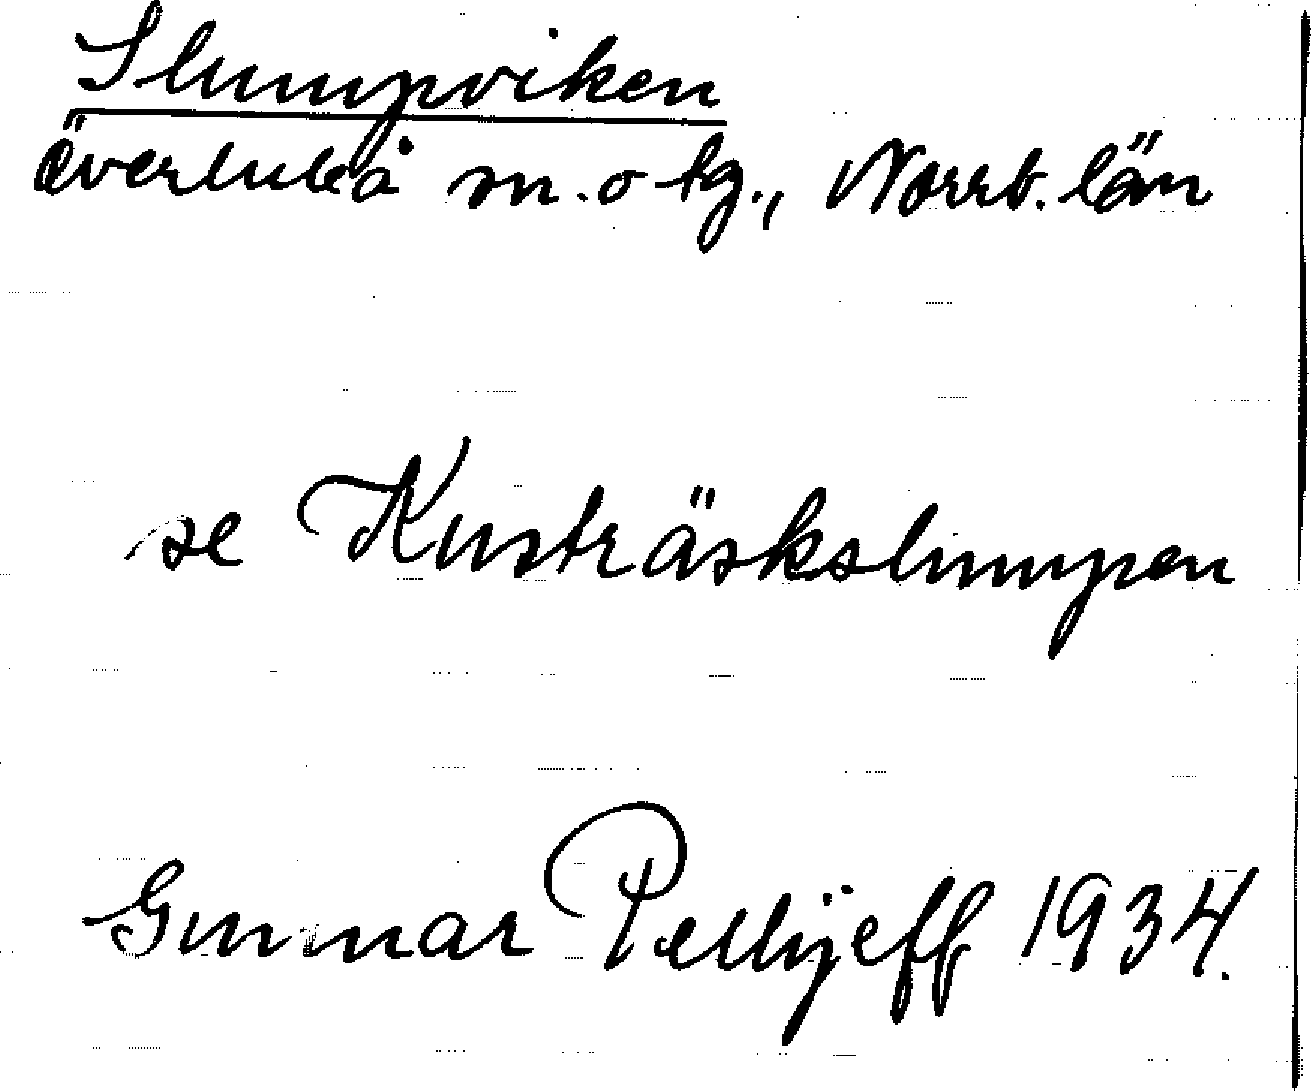 Slumpviken
Överluleå sn. o tg., Norrb. län
se Kusträskslumpen
Gunnar Pellijeff 1934.